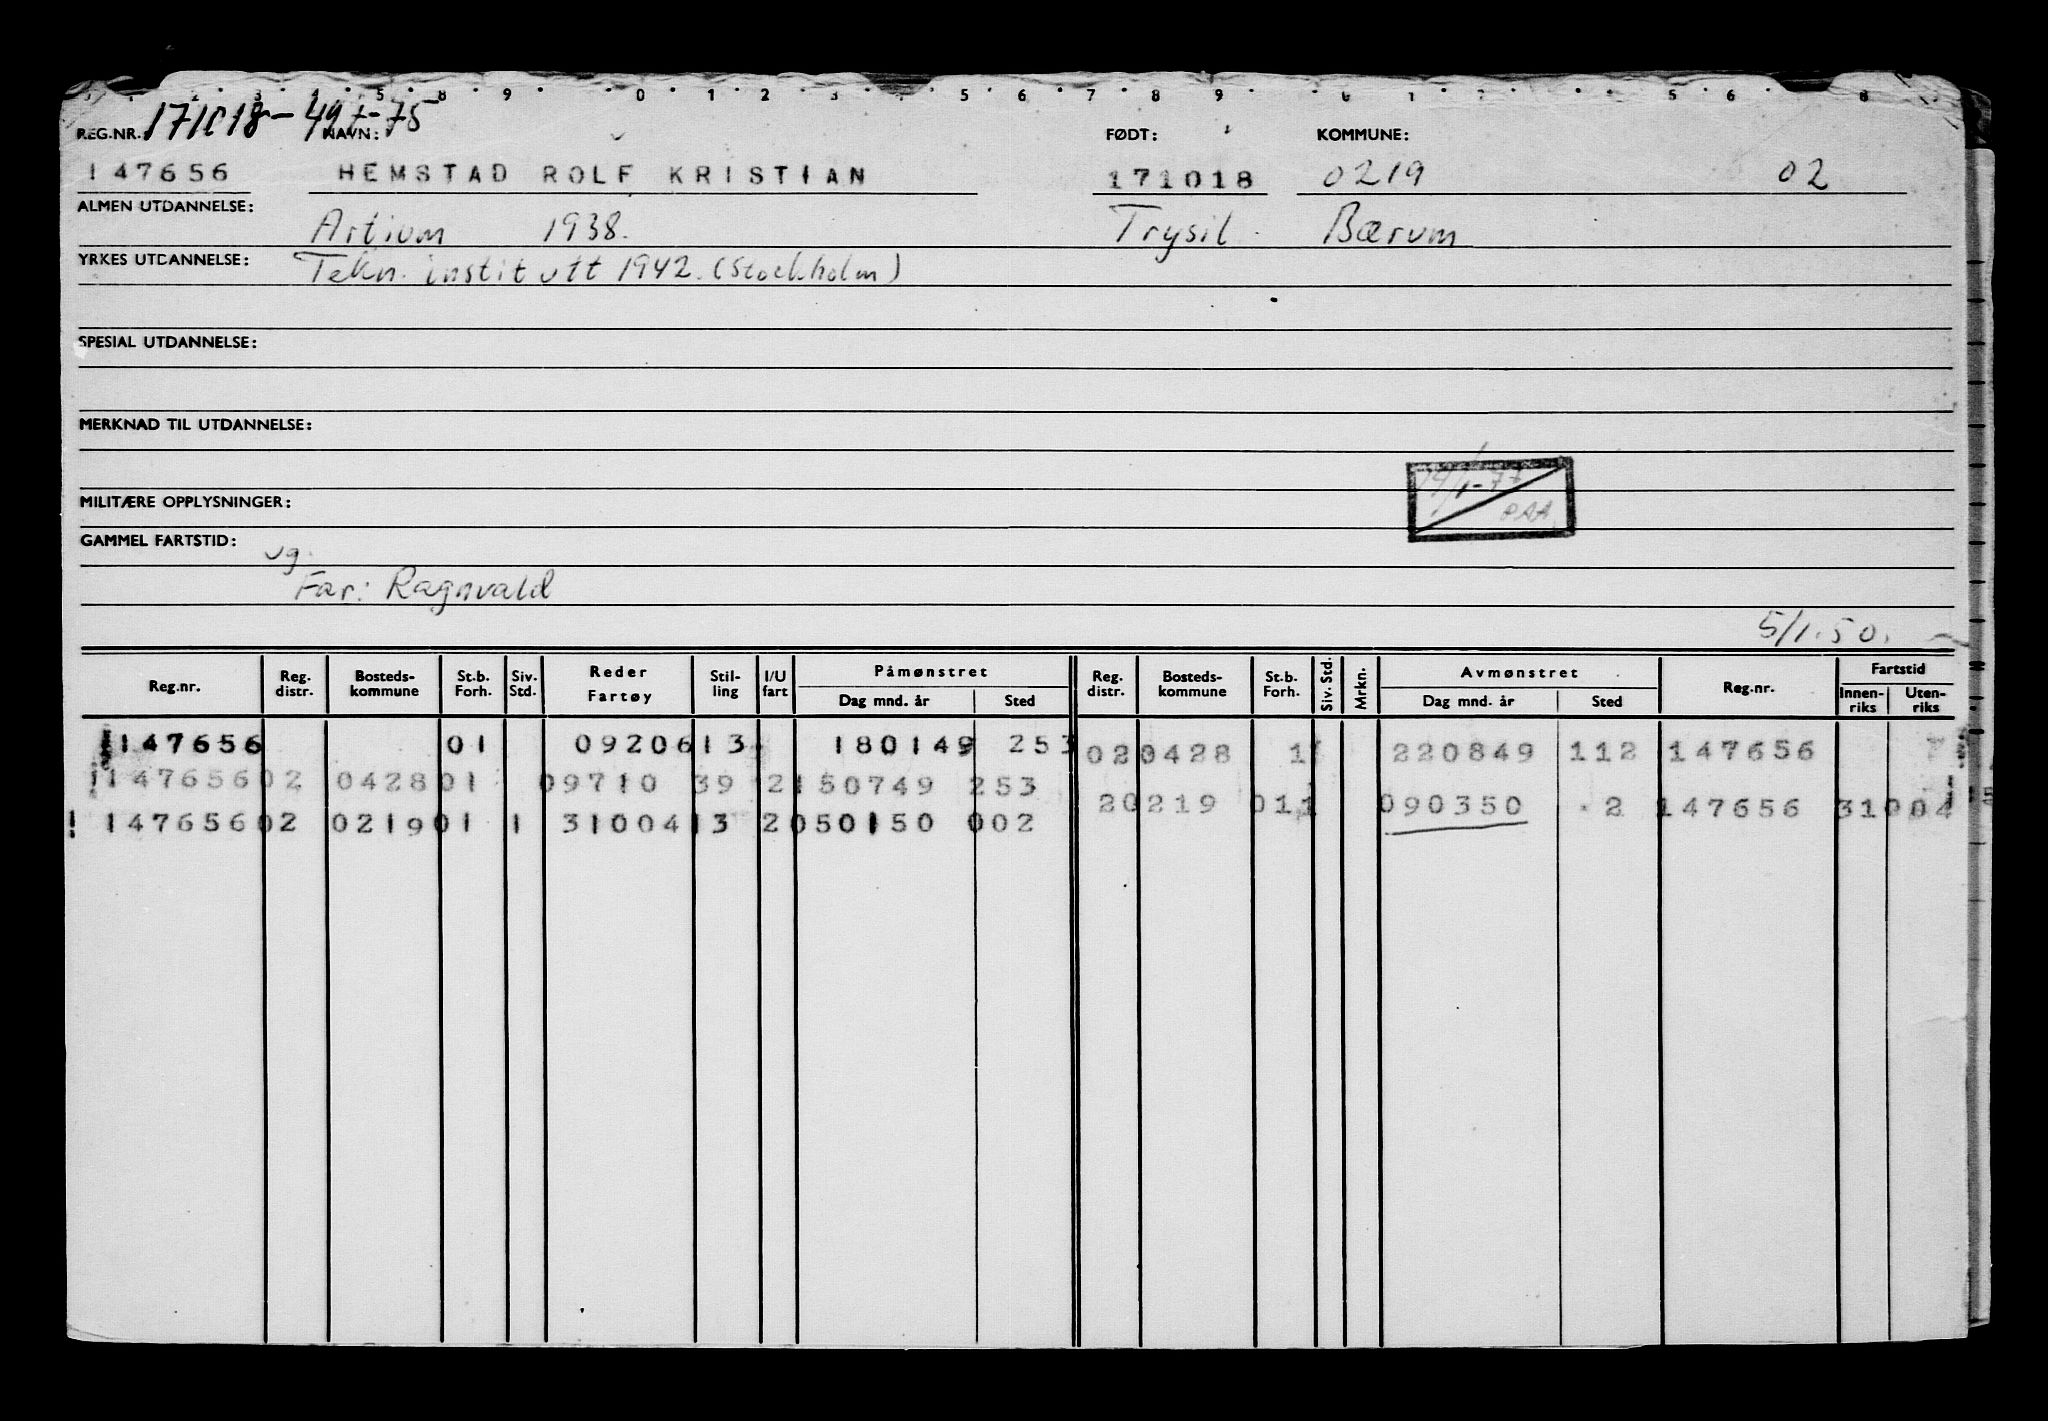 171018-497-75
REG.NR. NAVN: FØDT: KOMMUNE:
147656 HEMSTAD ROLF KRISTIAN 171018 0219 02
ALMEN UTDANNELSE: Artium 1938. Trysil Bærum
YRKES UTDANNELSE: Tekn. institutt 1942. (Stockholm)
SPESIAL UTDANNELSE:
MERKNAD TIL UTDANNELSE:
MILITÆRE OPPLYSNINGER:
GAMMEL FARTSTID:
ug.
Far: Ragnvald
5/1.50.
Reg.nr. Reg. distr. Bosteds-kommune St.b. Forh. Siv. Std. Reder Fartøy Stil-ling I/U fart Påmønstret Dag mnd. år Sted Reg. distr. Bosteds-kommune St.b. Forh. Siv. Std. Mrkn. Avmønstret Dag mnd. år Sted Reg.nr. Fartstid Innen-riks Uten-riks
147656 01 09206 13 180149 253 02 0428 1 220849 112 147656
147656 02 0428 01 09710 39 2 150749 253
2 0219 01 1 090350 2 147656 31004
147656 02 0219 01 1 31004 13 2 050150 002